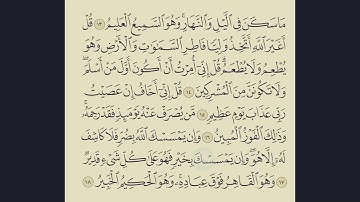 مَا سَكَنَ فِي ٱلَّيۡلِ وَٱلنَّهَارِۚ وَهُوَ ٱلسَّمِيعُ ٱلۡعَلِيمُ ١٣ قُلۡ
أَغَيۡرَ ٱللَّهِ أَتَّخِذُ وَلِيّٗا فَاطِرِ ٱلسَّمَٰوَٰتِ وَٱلۡأَرۡضِ وَهُوَ
يُطۡعِمُ وَلَا يُطۡعَمُۗ قُلۡ إِنِّيٓ أُمِرۡتُ أَنۡ أَكُونَ أَوَّلَ مَنۡ أَسۡلَمَۖ
وَلَا تَكُونَنَّ مِنَ ٱلۡمُشۡرِكِينَ ١٤ قُلۡ إِنِّيٓ أَخَافُ إِنۡ عَصَيۡتُ
رَبِّي عَذَابَ يَوۡمٍ عَظِيمٖ ١٥ مَّن يُصۡرَفۡ عَنۡهُ يَوۡمَئِذٖ فَقَدۡ رَحِمَهُۥۚ
وَذَٰلِكَ ٱلۡفَوۡزُ ٱلۡمُبِينُ ١٦ وَإِن يَمۡسَسۡكَ ٱللَّهُ بِضُرّٖ فَلَا كَاشِفَ
لَهُۥٓ إِلَّا هُوَۖ وَإِن يَمۡسَسۡكَ بِخَيۡرٖ فَهُوَ عَلَىٰ كُلِّ شَيۡءٖ قَدِيرٞ
١٧ وَهُوَ ٱلۡقَاهِرُ فَوۡقَ عِبَادِهِۦۚ وَهُوَ ٱلۡحَكِيمُ ٱلۡخَبِيرُ ١٨